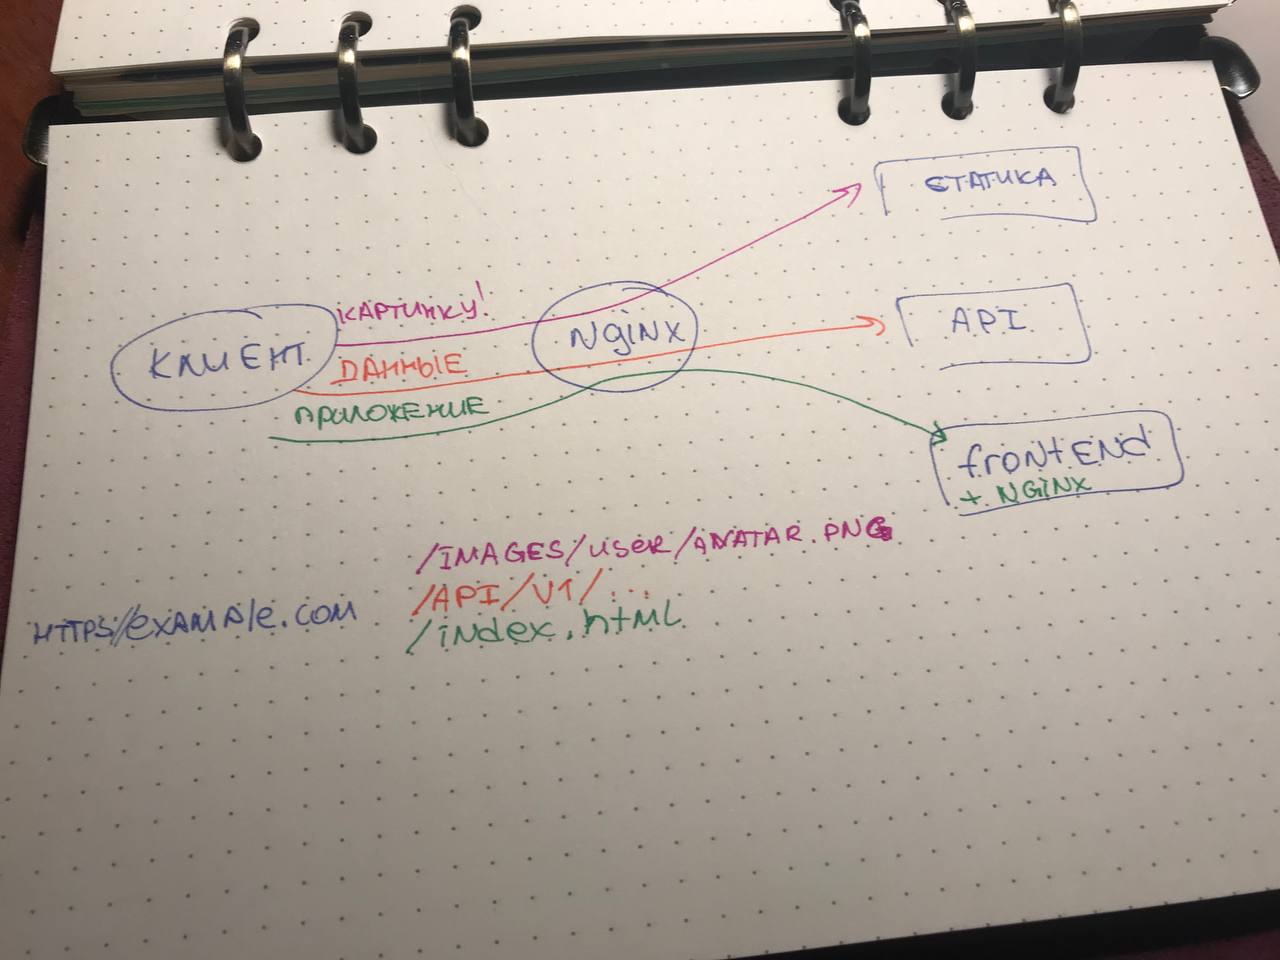 СТАТИКА
КАРТИНКУ!
КЛИЕНТ
NgiNX
API
ДАННЫЕ
ПРИЛОЖЕНИЕ
frontENd
+ NGiNX
/IMAGES/user/AVATAR.PNG
/API/V1/...
HTTPS//EXAMPLE.COM
/index.html